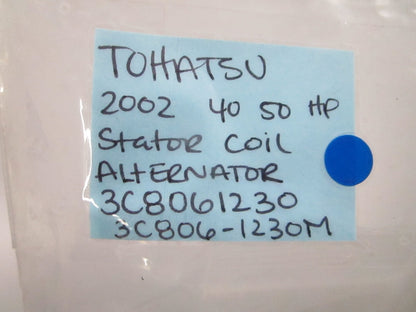 TOHATSU
2002 40 50 HP
Stator Coil
ALTERNATOR
3C8061230
3C806-1230M